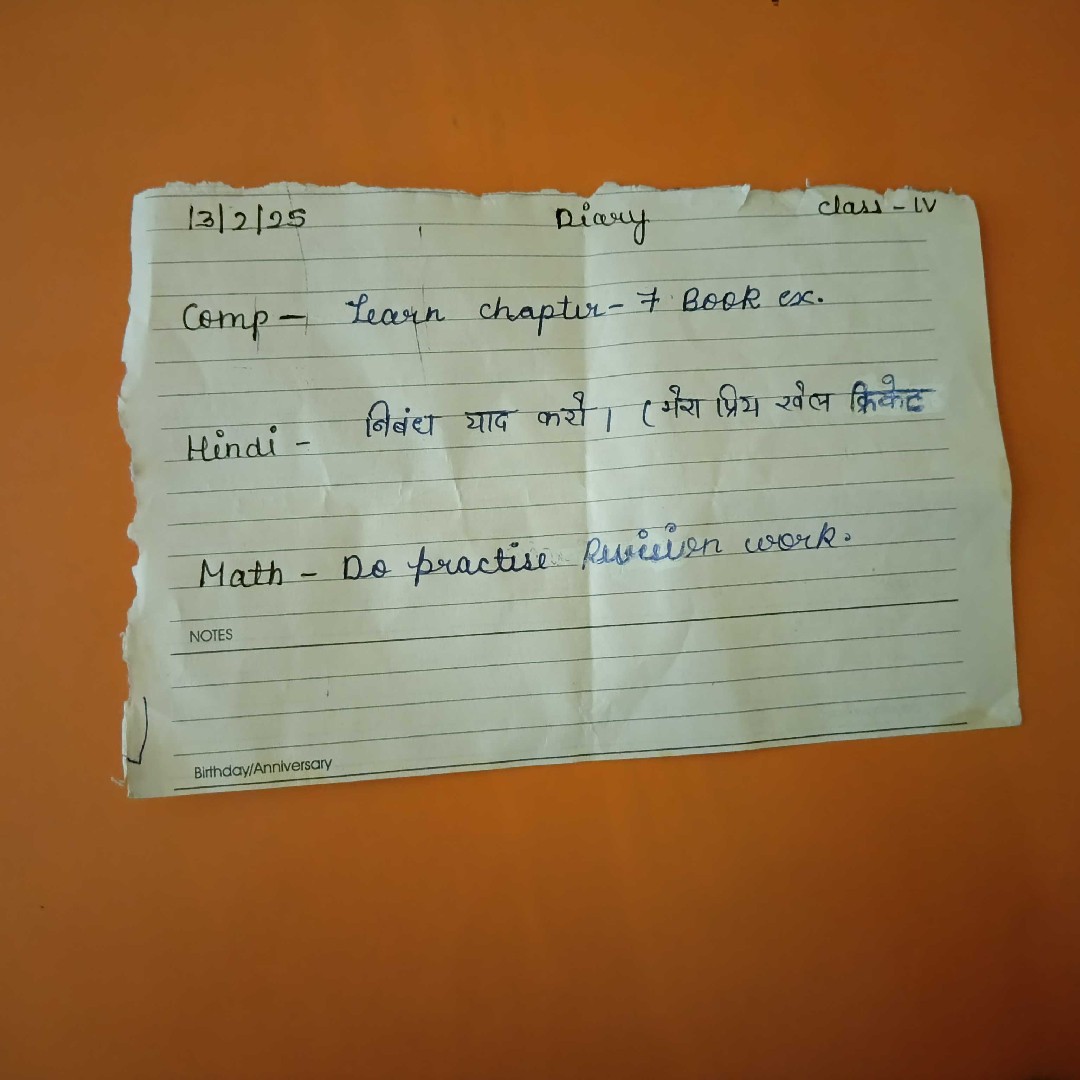 13/2/25 Diary class - IV
Comp - Learn chapter - 7 Book ex.
Hindi - निबंध याद करो। (मेरा प्रिय खेल क्रिकेट
Math - Do practise Revision work.
NOTES
Birthday/Anniversary